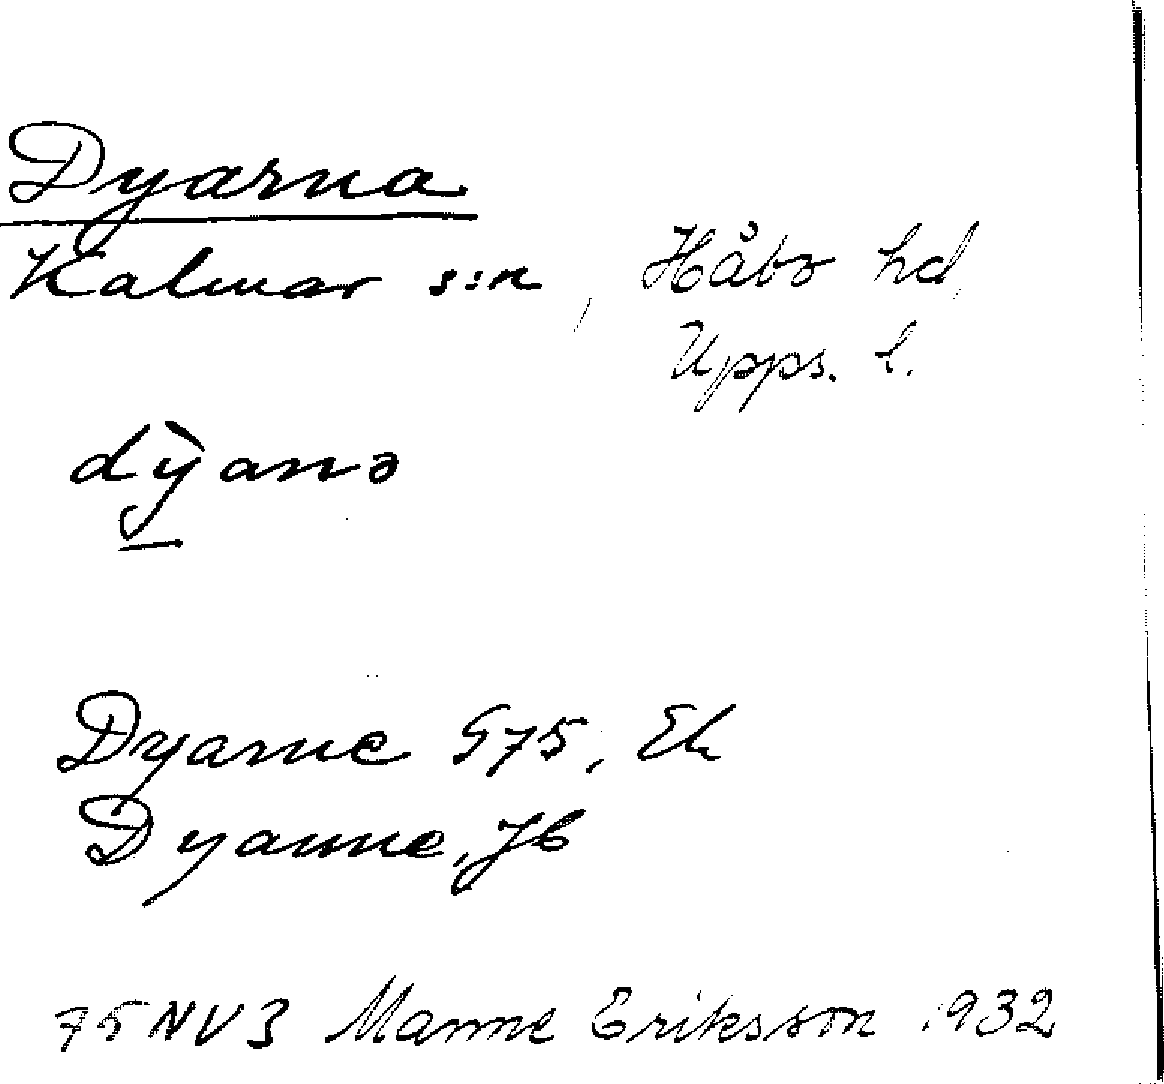 Dyarna
Kalmar s:n, Håbo hd,
Upps. l.
dỳ̖anə
Dyarne G75, Ek
Dyarne, Jb
75 NV3 Manne Eriksson 1932